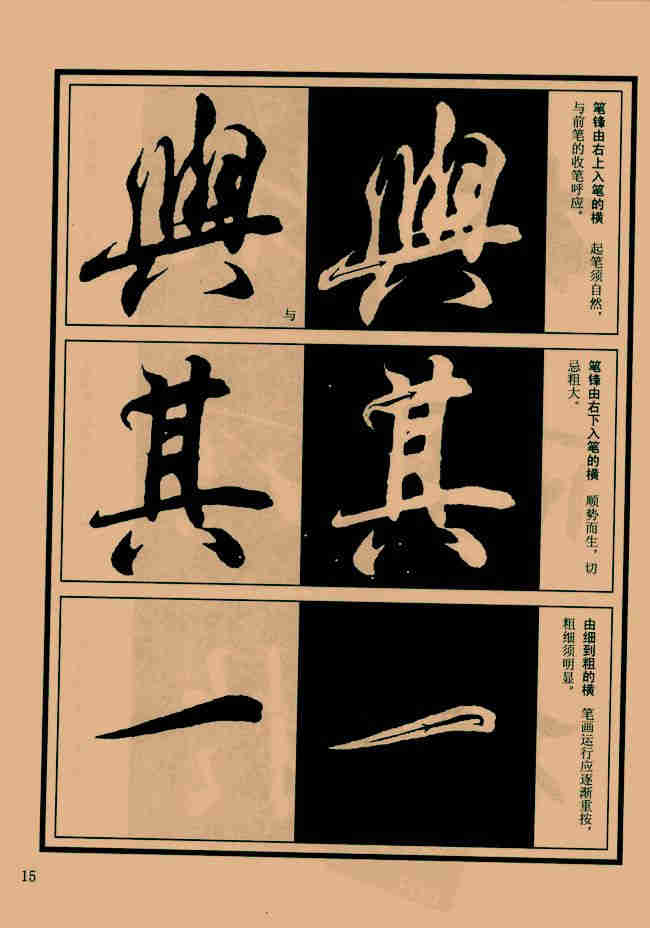 笔锋由右上入笔的横 起笔须自然，
与前笔的收笔呼应。
與
與
与
笔锋由右下入笔的横 顺势而生，切
忌粗大。
其
其
由细到粗的横 笔画运行应逐渐重按，
粗细须明显。
一
一
15